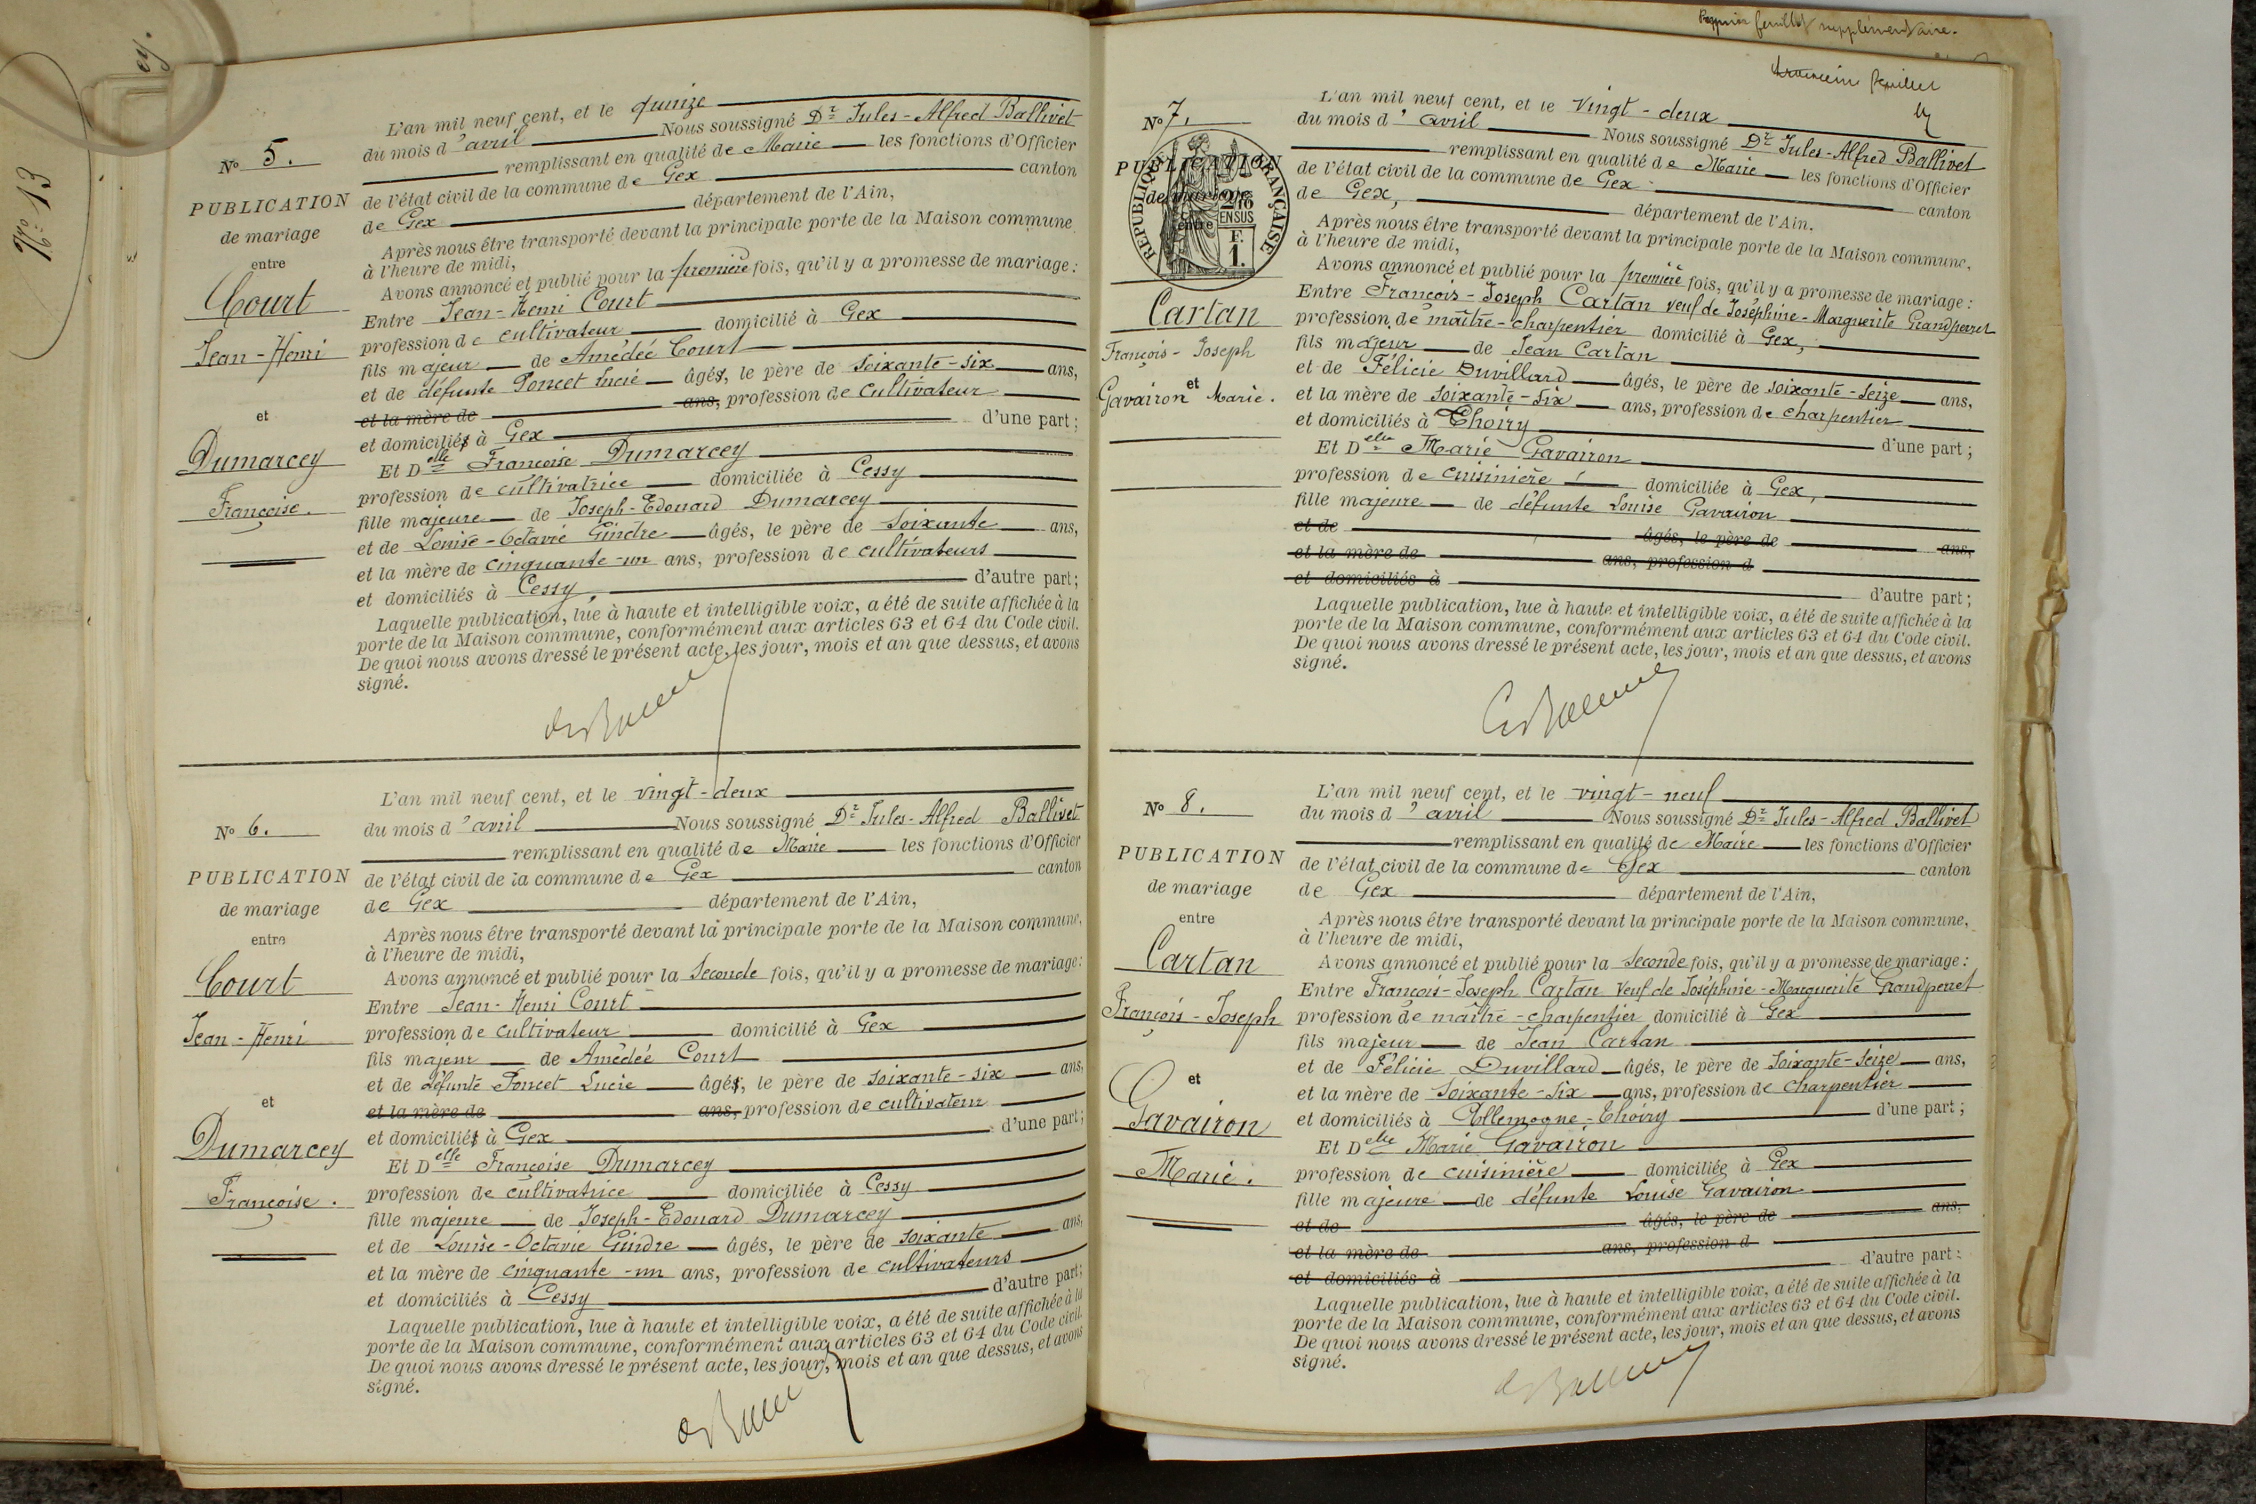 No 13
ey.
No 5.
PUBLICATION
de mariage
entre
Court
Jean-Henri
et
Dumarcey
Françoise.
L'an mil neuf cent, et le quinze
du mois d'avril Nous soussigné Dr Jules-Alfred Ballivet
remplissant en qualité de Maire les fonctions d'Officier
de l'état civil de la commune de Gex canton
de Gex département de l'Ain,
Après nous être transporté devant la principale porte de la Maison commune,
à l'heure de midi,
Avons annoncé et publié pour la première fois, qu'il y a promesse de mariage :
Entre Jean-Henri Court
profession de cultivateur domicilié à Gex
fils majeur de Amédée Court
et de défunte Poncet Lucie âgés, le père de soixante-six ans,
et la mère de ans, profession de cultivateur
et domiciliés à Gex d'une part ;
Et Delle Françoise Dumarcey
profession de cultivatrice domiciliée à Cessy
fille majeure de Joseph-Edouard Dumarcey
et de Louise-Octavie Gindre âgés, le père de soixante ans,
et la mère de cinquante-un ans, profession de cultivateurs
et domiciliés à Cessy, d'autre part ;
Laquelle publication, lue à haute et intelligible voix, a été de suite affichée à la
porte de la Maison commune, conformément aux articles 63 et 64 du Code civil.
De quoi nous avons dressé le présent acte, les jour, mois et an que dessus, et avons
signé.
No 6.
PUBLICATION
de mariage
entre
Court
Jean-Henri
et
Dumarcey
Françoise.
L'an mil neuf cent, et le vingt-deux
du mois d'avril Nous soussigné Dr Jules-Alfred Ballivet
remplissant en qualité de Maire les fonctions d'Officier
de l'état civil de la commune de Gex canton
de Gex département de l'Ain,
Après nous être transporté devant la principale porte de la Maison commune,
à l'heure de midi,
Avons annoncé et publié pour la seconde fois, qu'il y a promesse de mariage :
Entre Jean-Henri Court
profession de cultivateur domicilié à Gex
fils majeur de Amédée Court
et de défunte Poncet Lucie âgés, le père de soixante-six ans,
et la mère de ans, profession de cultivateur
et domiciliés à Gex d'une part ;
Et Delle Françoise Dumarcey
profession de cultivatrice domiciliée à Cessy
fille majeure de Joseph-Edouard Dumarcey
et de Louise-Octavie Gindre âgés, le père de soixante ans,
et la mère de cinquante-un ans, profession de cultivateurs
et domiciliés à Cessy d'autre part ;
Laquelle publication, lue à haute et intelligible voix, a été de suite affichée à la
porte de la Maison commune, conformément aux articles 63 et 64 du Code civil.
De quoi nous avons dressé le présent acte, les jour, mois et an que dessus, et avons
signé.
feuillet supplémentaire.
feuillet
No 7.
PUBLICATION
de mariage
entre
RÉPUBLIQUE FRANÇAISE
2/10
EN SUS
F.
1.
Cartan
François-Joseph
et
Gavairon Marie.
L'an mil neuf cent, et le vingt-deux
du mois d'avril Nous soussigné Dr Jules-Alfred Ballivet
remplissant en qualité de Maire les fonctions d'Officier
de l'état civil de la commune de Gex canton
de Gex, département de l'Ain.
Après nous être transporté devant la principale porte de la Maison commune,
à l'heure de midi,
Avons annoncé et publié pour la première fois, qu'il y a promesse de mariage :
Entre François-Joseph Cartan veuf de Joséphine-Marguerite Grandperret
profession de maître-charpentier domicilié à Gex,
fils majeur de Jean Cartan
et de Félicie Duvillard âgés, le père de soixante-seize ans,
et la mère de soixante-six ans, profession de charpentier
et domiciliés à Thoiry d'une part ;
Et Delle Marie Gavairon
profession de cuisinière domiciliée à Gex,
fille majeure de défunte Louise Gavairon
et de âgés, le père de ans,
et la mère de ans, profession d
et domiciliés à d'autre part ;
Laquelle publication, lue à haute et intelligible voix, a été de suite affichée à la
porte de la Maison commune, conformément aux articles 63 et 64 du Code civil.
De quoi nous avons dressé le présent acte, les jour, mois et an que dessus, et avons
signé.
No 8.
PUBLICATION
de mariage
entre
Cartan
François-Joseph
et
Gavairon
Marie.
L'an mil neuf cent, et le vingt-neuf
du mois d'avril Nous soussigné Dr Jules-Alfred Ballivet
remplissant en qualité de Maire les fonctions d'Officier
de l'état civil de la commune de Gex canton
de Gex département de l'Ain,
Après nous être transporté devant la principale porte de la Maison commune,
à l'heure de midi,
Avons annoncé et publié pour la seconde fois, qu'il y a promesse de mariage :
Entre François-Joseph Cartan veuf de Joséphine-Marguerite Grandperret
profession de maître-charpentier domicilié à Gex
fils majeur de Jean Cartan
et de Félicie Duvillard âgés, le père de soixante-seize ans,
et la mère de soixante-six ans, profession de charpentier
et domiciliés à Allemogne-Thoiry d'une part ;
Et Delle Marie Gavairon
profession de cuisinière domiciliée à Gex
fille majeure de défunte Louise Gavairon
et de âgés, le père de ans,
et la mère de ans, profession d
et domiciliés à d'autre part :
Laquelle publication, lue à haute et intelligible voix, a été de suite affichée à la
porte de la Maison commune, conformément aux articles 63 et 64 du Code civil.
De quoi nous avons dressé le présent acte, les jour, mois et an que dessus, et avons
signé.